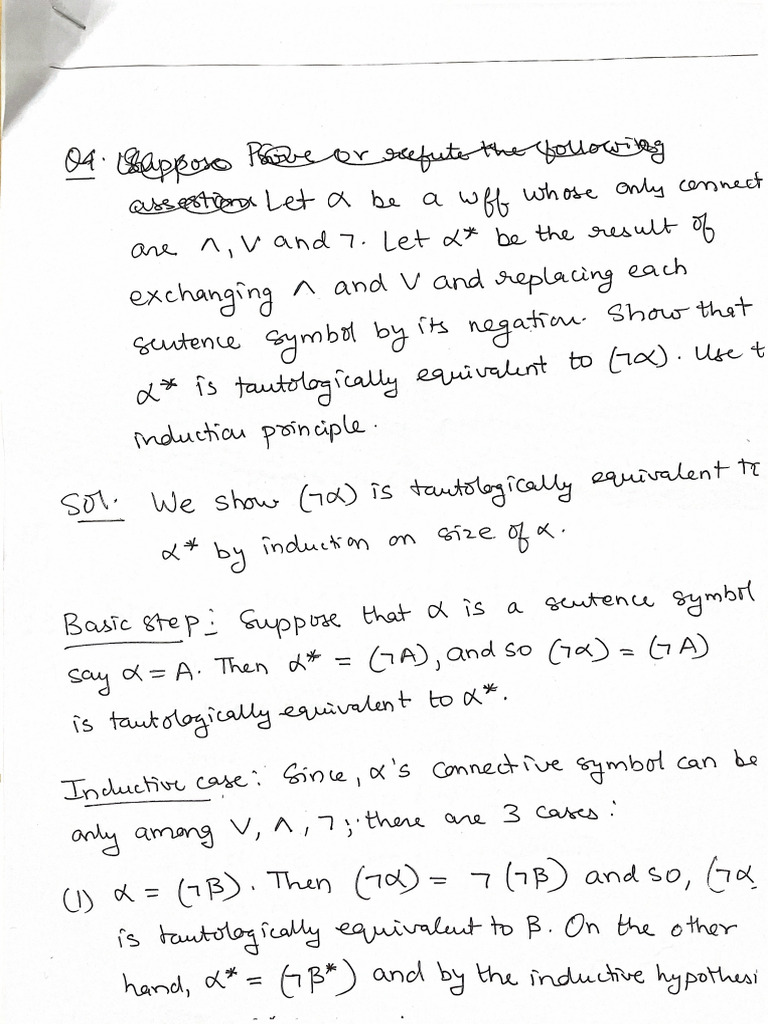 Q4. Suppose Prove or refute the following
assertion Let α be a wff whose only connect
are ∧, ∨ and ¬. Let α* be the result of
exchanging ∧ and ∨ and replacing each
sentence symbol by its negation. Show that
α* is tautologically equivalent to (¬α). Use t
induction principle.
Sol. We show (¬α) is tautologically equivalent to
α* by induction on size of α.
Basic step: Suppose that α is a sentence symbol
say α = A. Then α* = (¬A), and so (¬α) = (¬A)
is tautologically equivalent to α*.
Inductive case: Since, α's connective symbol can be
only among ∨, ∧, ¬; there are 3 cases:
(1) α = (¬β). Then (¬α) = ¬(¬β) and so, (¬α
is tautologically equivalent to β. On the other
hand, α* = (¬β*) and by the inductive hypothesi